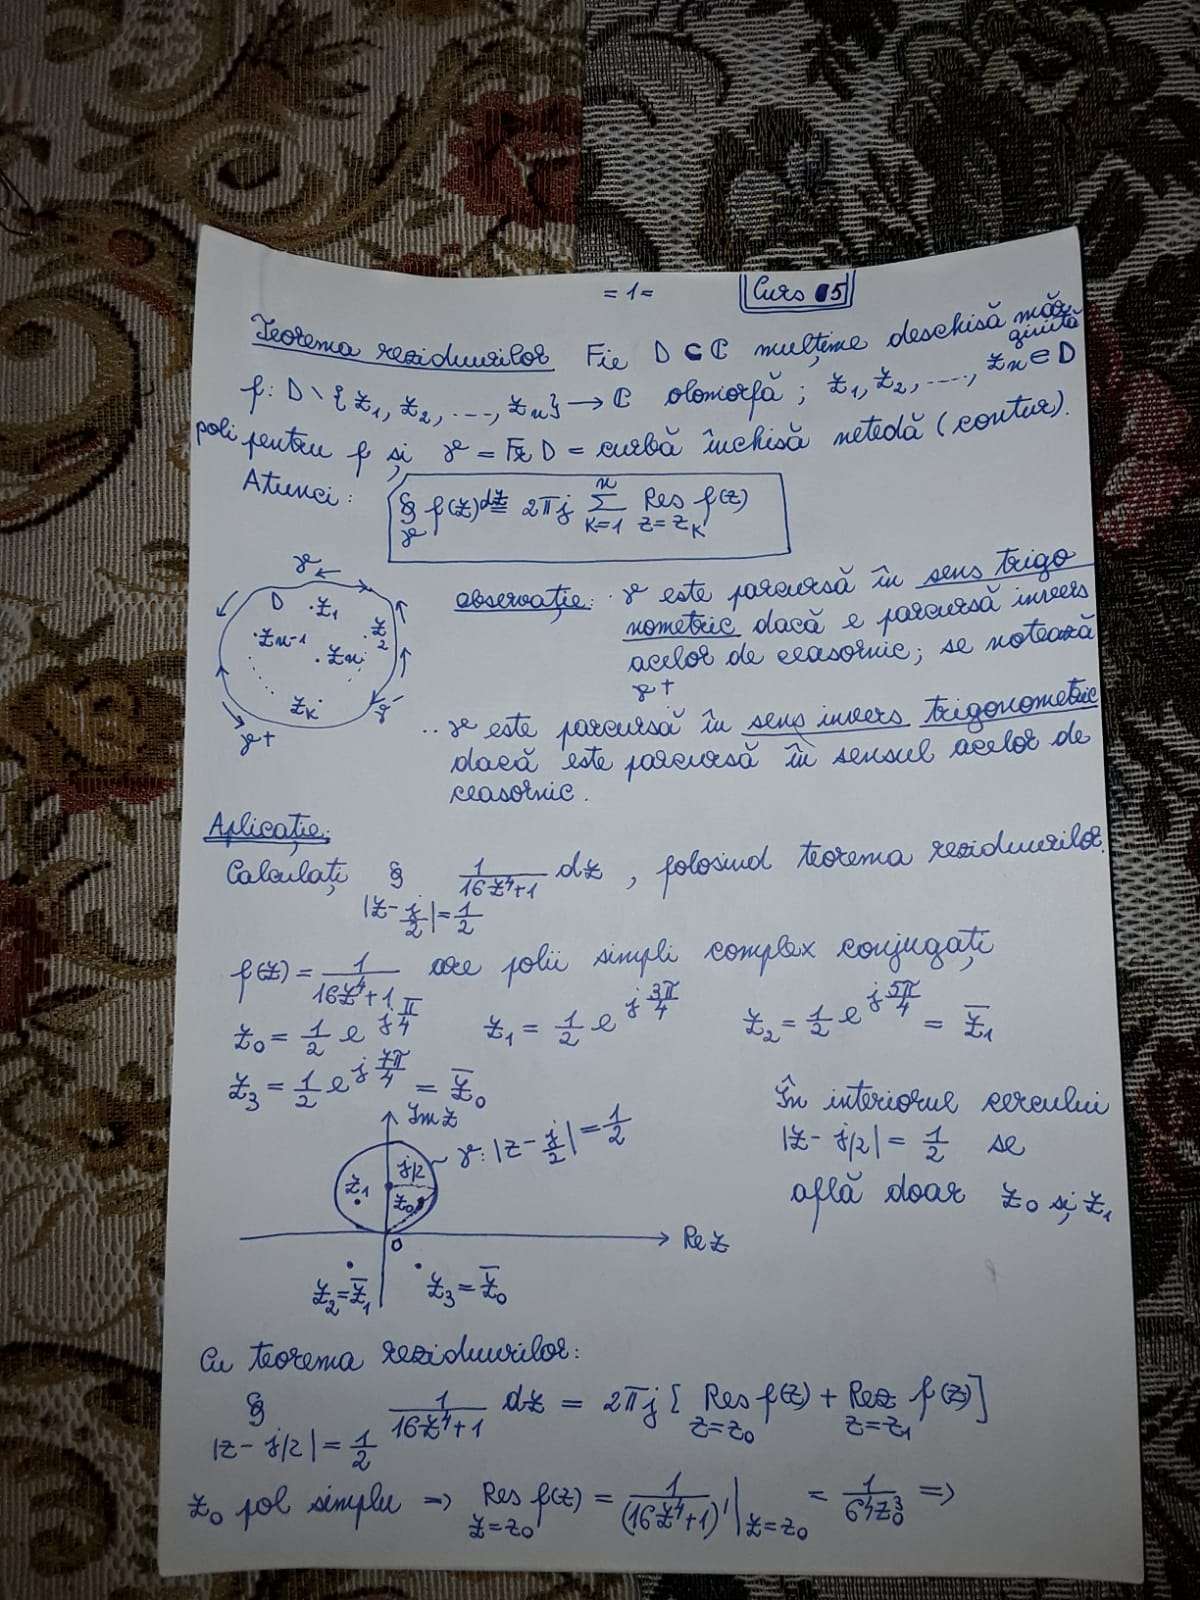 = 1 =
Curs 05
Teorema reziduurilor Fie D ⊂ ℂ mulțime deschisă mărginită
f: D \ {z₁, z₂, ..., zₙ} → ℂ olomorfă ; z₁, z₂, ...., zₙ ∈ D
poli pentru f și γ = Fr D = curbă închisă netedă (contur).
Atunci: ∮_γ f(z) dz = 2πj Σ_{k=1}^{n} Res_{z=z_k} f(z)
γ⁻
D
z₁
zₙ₋₁
z₂
zₙ
z_k
γ⁻
γ+
observație: · γ este parcursă în sens trigo
nometric dacă e parcursă invers
acelor de ceasornic; se notează
γ+
.. γ este parcursă în sens invers trigonometric
dacă este parcursă în sensul acelor de
ceasornic.
Aplicație:
Calculați ∮_{|z - j/2| = 1/2} 1/(16z⁴+1) dz , folosind teorema reziduurilor.
f(z) = 1/(16z⁴+1) are polii simpli complex conjugați
z₀ = 1/2 e^{jπ/4} z₁ = 1/2 e^{j3π/4} z₂ = 1/2 e^{j5π/4} = z̄₁
z₃ = 1/2 e^{j7π/4} = z̄₀
În interiorul cercului
|z - j/2| = 1/2 se
află doar z₀ și z₁
Im z
γ: |z - j/2| = 1/2
j/2
z₁
z₀
0
Re z
z₂ = z̄₁
z₃ = z̄₀
Cu teorema reziduurilor:
∮_{|z - j/2| = 1/2} 1/(16z⁴+1) dz = 2πj [ Res_{z=z₀} f(z) + Res_{z=z₁} f(z) ]
z₀ pol simplu ⇒ Res_{z=z₀} f(z) = 1/(16z⁴+1)' |_{z=z₀} = 1/64z₀³ ⇒